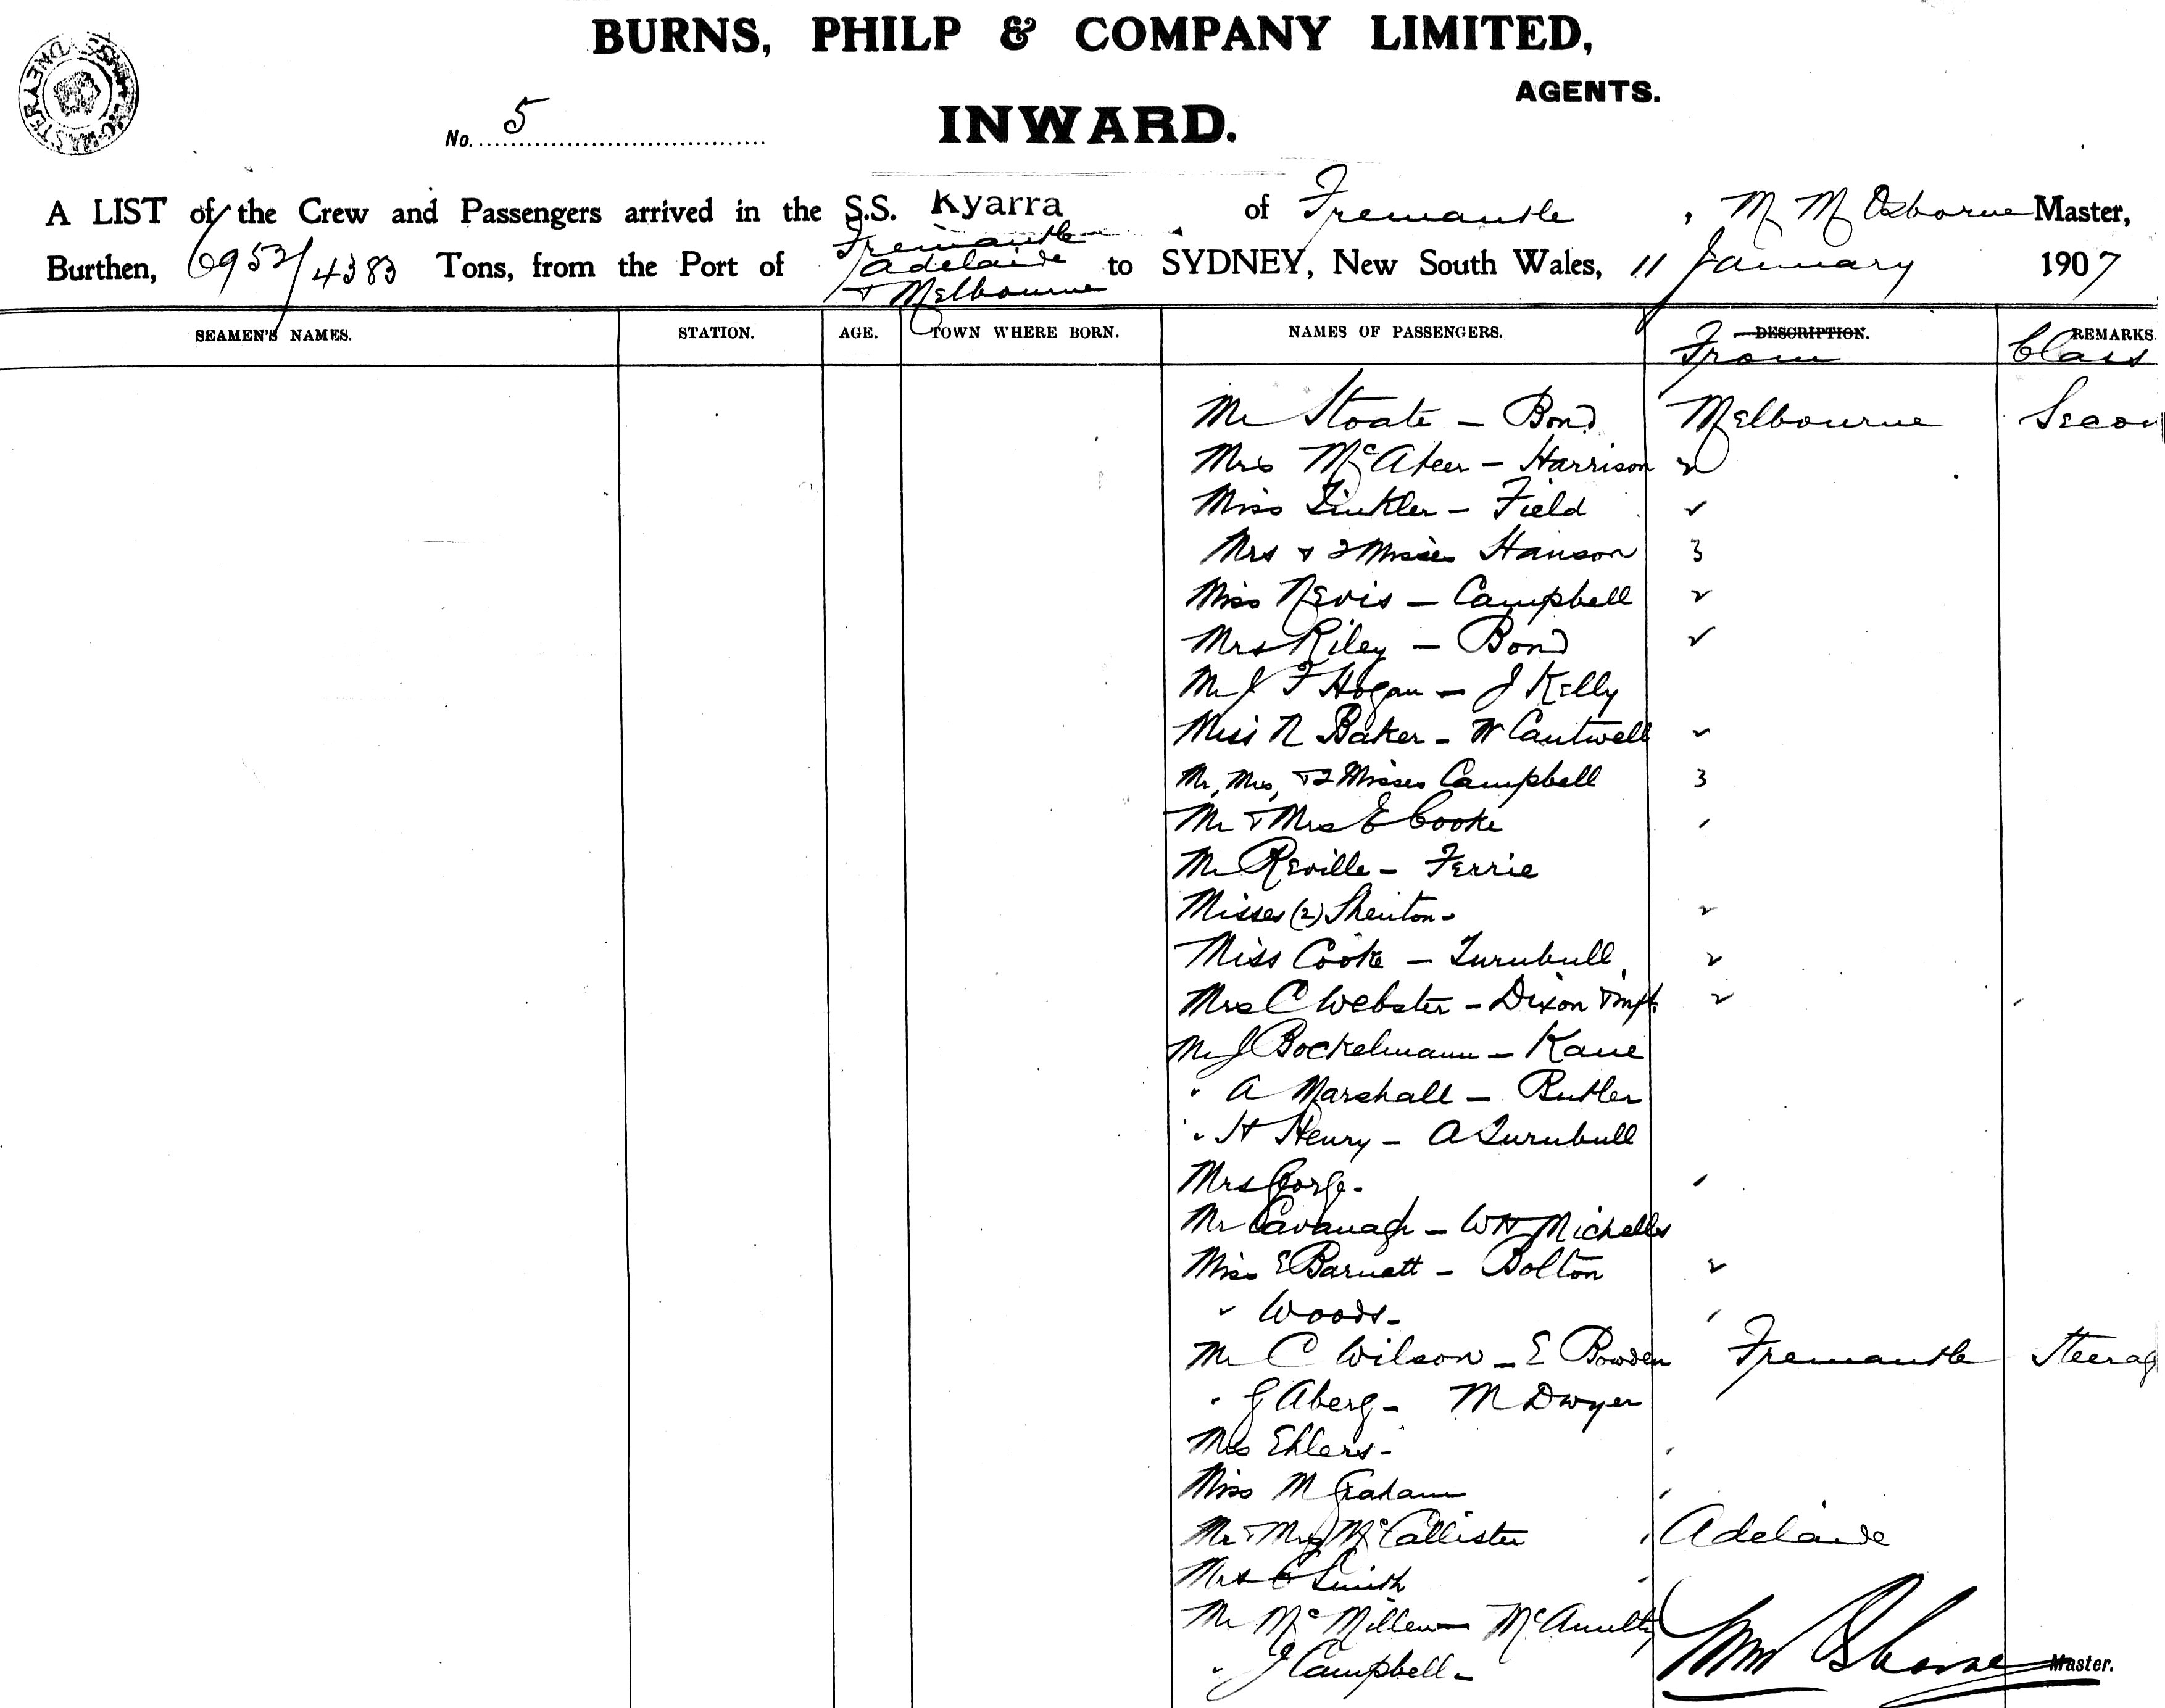 BURNS, PHILP & COMPANY LIMITED,
AGENTS.
No. 5
INWARD.
A LIST of the Crew and Passengers arrived in the S.S. Kyarra of Fremantle, M M Osborne Master,
Fremantle
Burthen, 6952/4383 Tons, from the Port of Adelaide to SYDNEY, New South Wales, 11 January 1907
+ Melbourne
SEAMEN'S NAMES. STATION. AGE. TOWN WHERE BORN. NAMES OF PASSENGERS. DESCRIPTION. REMARKS.
From Class
Mr Stoate - Bond Melbourne Secon
Mrs McAteer - Harrison 2
Miss Linkler - Field ✓
Mrs + 2 Misses Hanson 3
Miss Nevis - Campbell 2
Mrs Riley - Bond ✓
Mr J F Hogan - J Kelly
Miss N Baker - W Cantwell ✓
Mr, Mrs, + 2 Misses Campbell 3
Mr + Mrs E Cooke
Mr Reville - Ferrie
Misses (2) Shenton - 2
Miss Cooke - Turnbull 2
Mrs C Webster - Dixon + inft. 2
Mr J Bockelmann - Kane
" A Marshall - Butler
" H Henry - A Turnbull
Mrs George -
Mr Cavanagh - WH Michells
Miss E Barnett - Bolton 2
" Woods -
Mr C Wilson - E Bowden Fremantle Steerag
" G Aberg - M Dwyer
Mrs Ehlers -
Miss M Graham
Mr + Mrs McCallister Adelaide
Mrs C Smith
Mr McMillan McAnulty
" J Campbell -
MM Osborne Master.